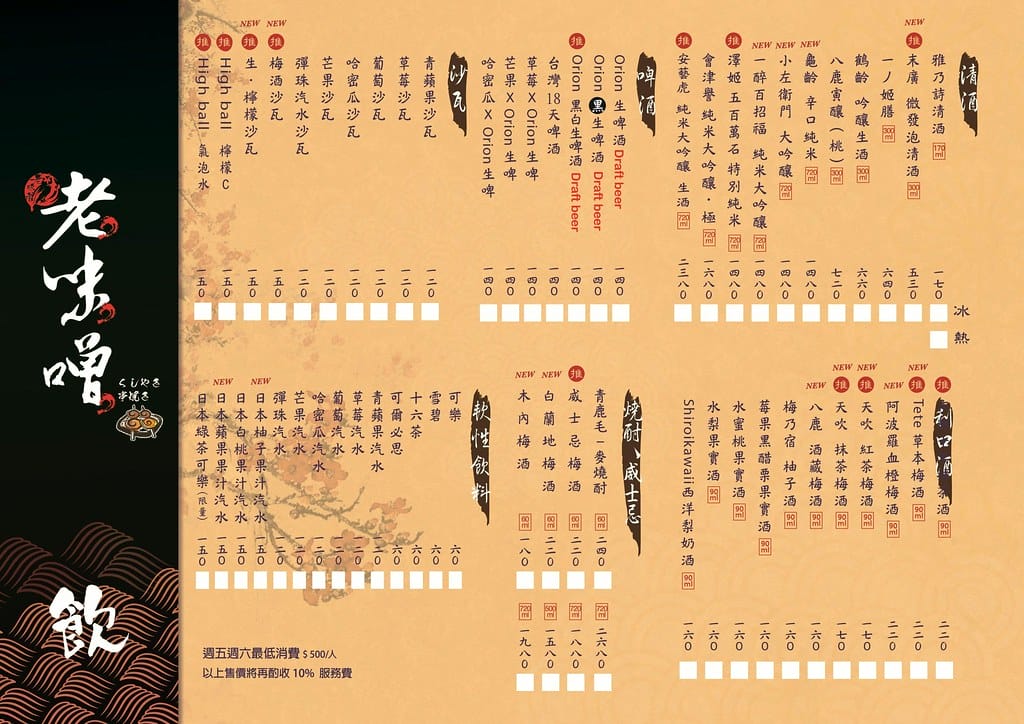 老味噌
くしやき
串焼き
飲
清酒
冰
熱
雅乃詩清酒 170ml 一七〇
推 末廣 微發泡清酒 300ml 五三〇
NEW
一ノ姬膳 300ml 六四〇
鶴齡 吟釀生酒 300ml 六六〇
八鹿寅釀(桃) 300ml 七二〇
NEW 龜齡 辛口純米 720ml 一四八〇
NEW 小左衛門 大吟釀 720ml 一四八〇
NEW 一醉百招福 純米大吟釀 720ml 一四八〇
推 澤姬 五百萬石 特別純米 720ml 一四八〇
會津譽 純米大吟釀・極 720ml 一六八〇
推 安藝虎 純米大吟釀 生酒 720ml 二三八〇
啤酒
Orion 生啤酒 Draft beer 一四〇
Orion 黑生啤酒 Draft beer 一四〇
推 Orion 黑白生啤酒 Draft beer 一四〇
台灣18天啤酒 一四〇
草莓X Orion生啤 一四〇
芒果X Orion生啤 一四〇
哈密瓜X Orion生啤 一四〇
沙瓦
青蘋果沙瓦 一二〇
草莓沙瓦 一二〇
葡萄沙瓦 一二〇
哈密瓜沙瓦 一二〇
芒果沙瓦 一二〇
彈珠汽水沙瓦 一二〇
NEW 推 梅酒沙瓦 一五〇
NEW 推 生・檸檬沙瓦 一五〇
推 High ball 檸檬C 一五〇
推 High ball 氣泡水 一五〇
利口酒
推 茶酒 二二〇
NEW 推 Tete 草本梅酒 90ml 二二〇
NEW 阿波羅血橙梅酒 90ml 二二〇
NEW 推 天吹 紅茶梅酒 90ml 一七〇
NEW 推 天吹 抹茶梅酒 90ml 一七〇
NEW 八鹿 酒藏梅酒 90ml 一六〇
梅乃宿 柚子酒 90ml 一六〇
莓果黑醋栗果實酒 90ml 一六〇
水蜜桃果實酒 90ml 一六〇
水梨果實酒 90ml 一六〇
Shiroikawaii西洋梨奶酒 90ml 一六〇
燒酎、威士忌
青鹿毛-麥燒酎 60ml 二四〇 720ml 二六八〇
推 威士忌梅酒 60ml 二二〇 720ml 一八八〇
NEW 白蘭地梅酒 60ml 二二〇 500ml 一五八〇
NEW 木內梅酒 60ml 一八〇 720ml 一九八〇
軟性飲料
可樂 六〇
雪碧 六〇
十六茶 六〇
可爾必思 六〇
青蘋果汽水 一二〇
草莓汽水 一二〇
葡萄汽水 一二〇
哈密瓜汽水 一二〇
彈珠汽水 一二〇
NEW 日本柚子果汁汽水 一五〇
日本白桃果汁汽水 一五〇
NEW 日本蘋果果汁汽水 一五〇
日本綠茶可樂(限量) 一五〇
週五週六最低消費 $ 500/人
以上售價將再酌收 10% 服務費